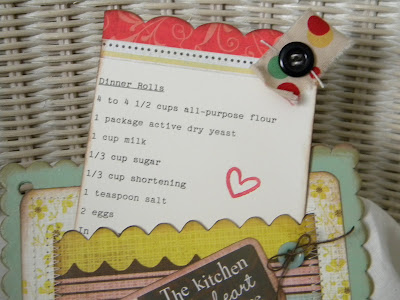 Dinner Rolls
4 to 4 1/2 cups all-purpose flour
1 package active dry yeast
1 cup milk
1/3 cup sugar
1/3 cup shortening
1 teaspoon salt
2 eggs
In
The kitchen
heart